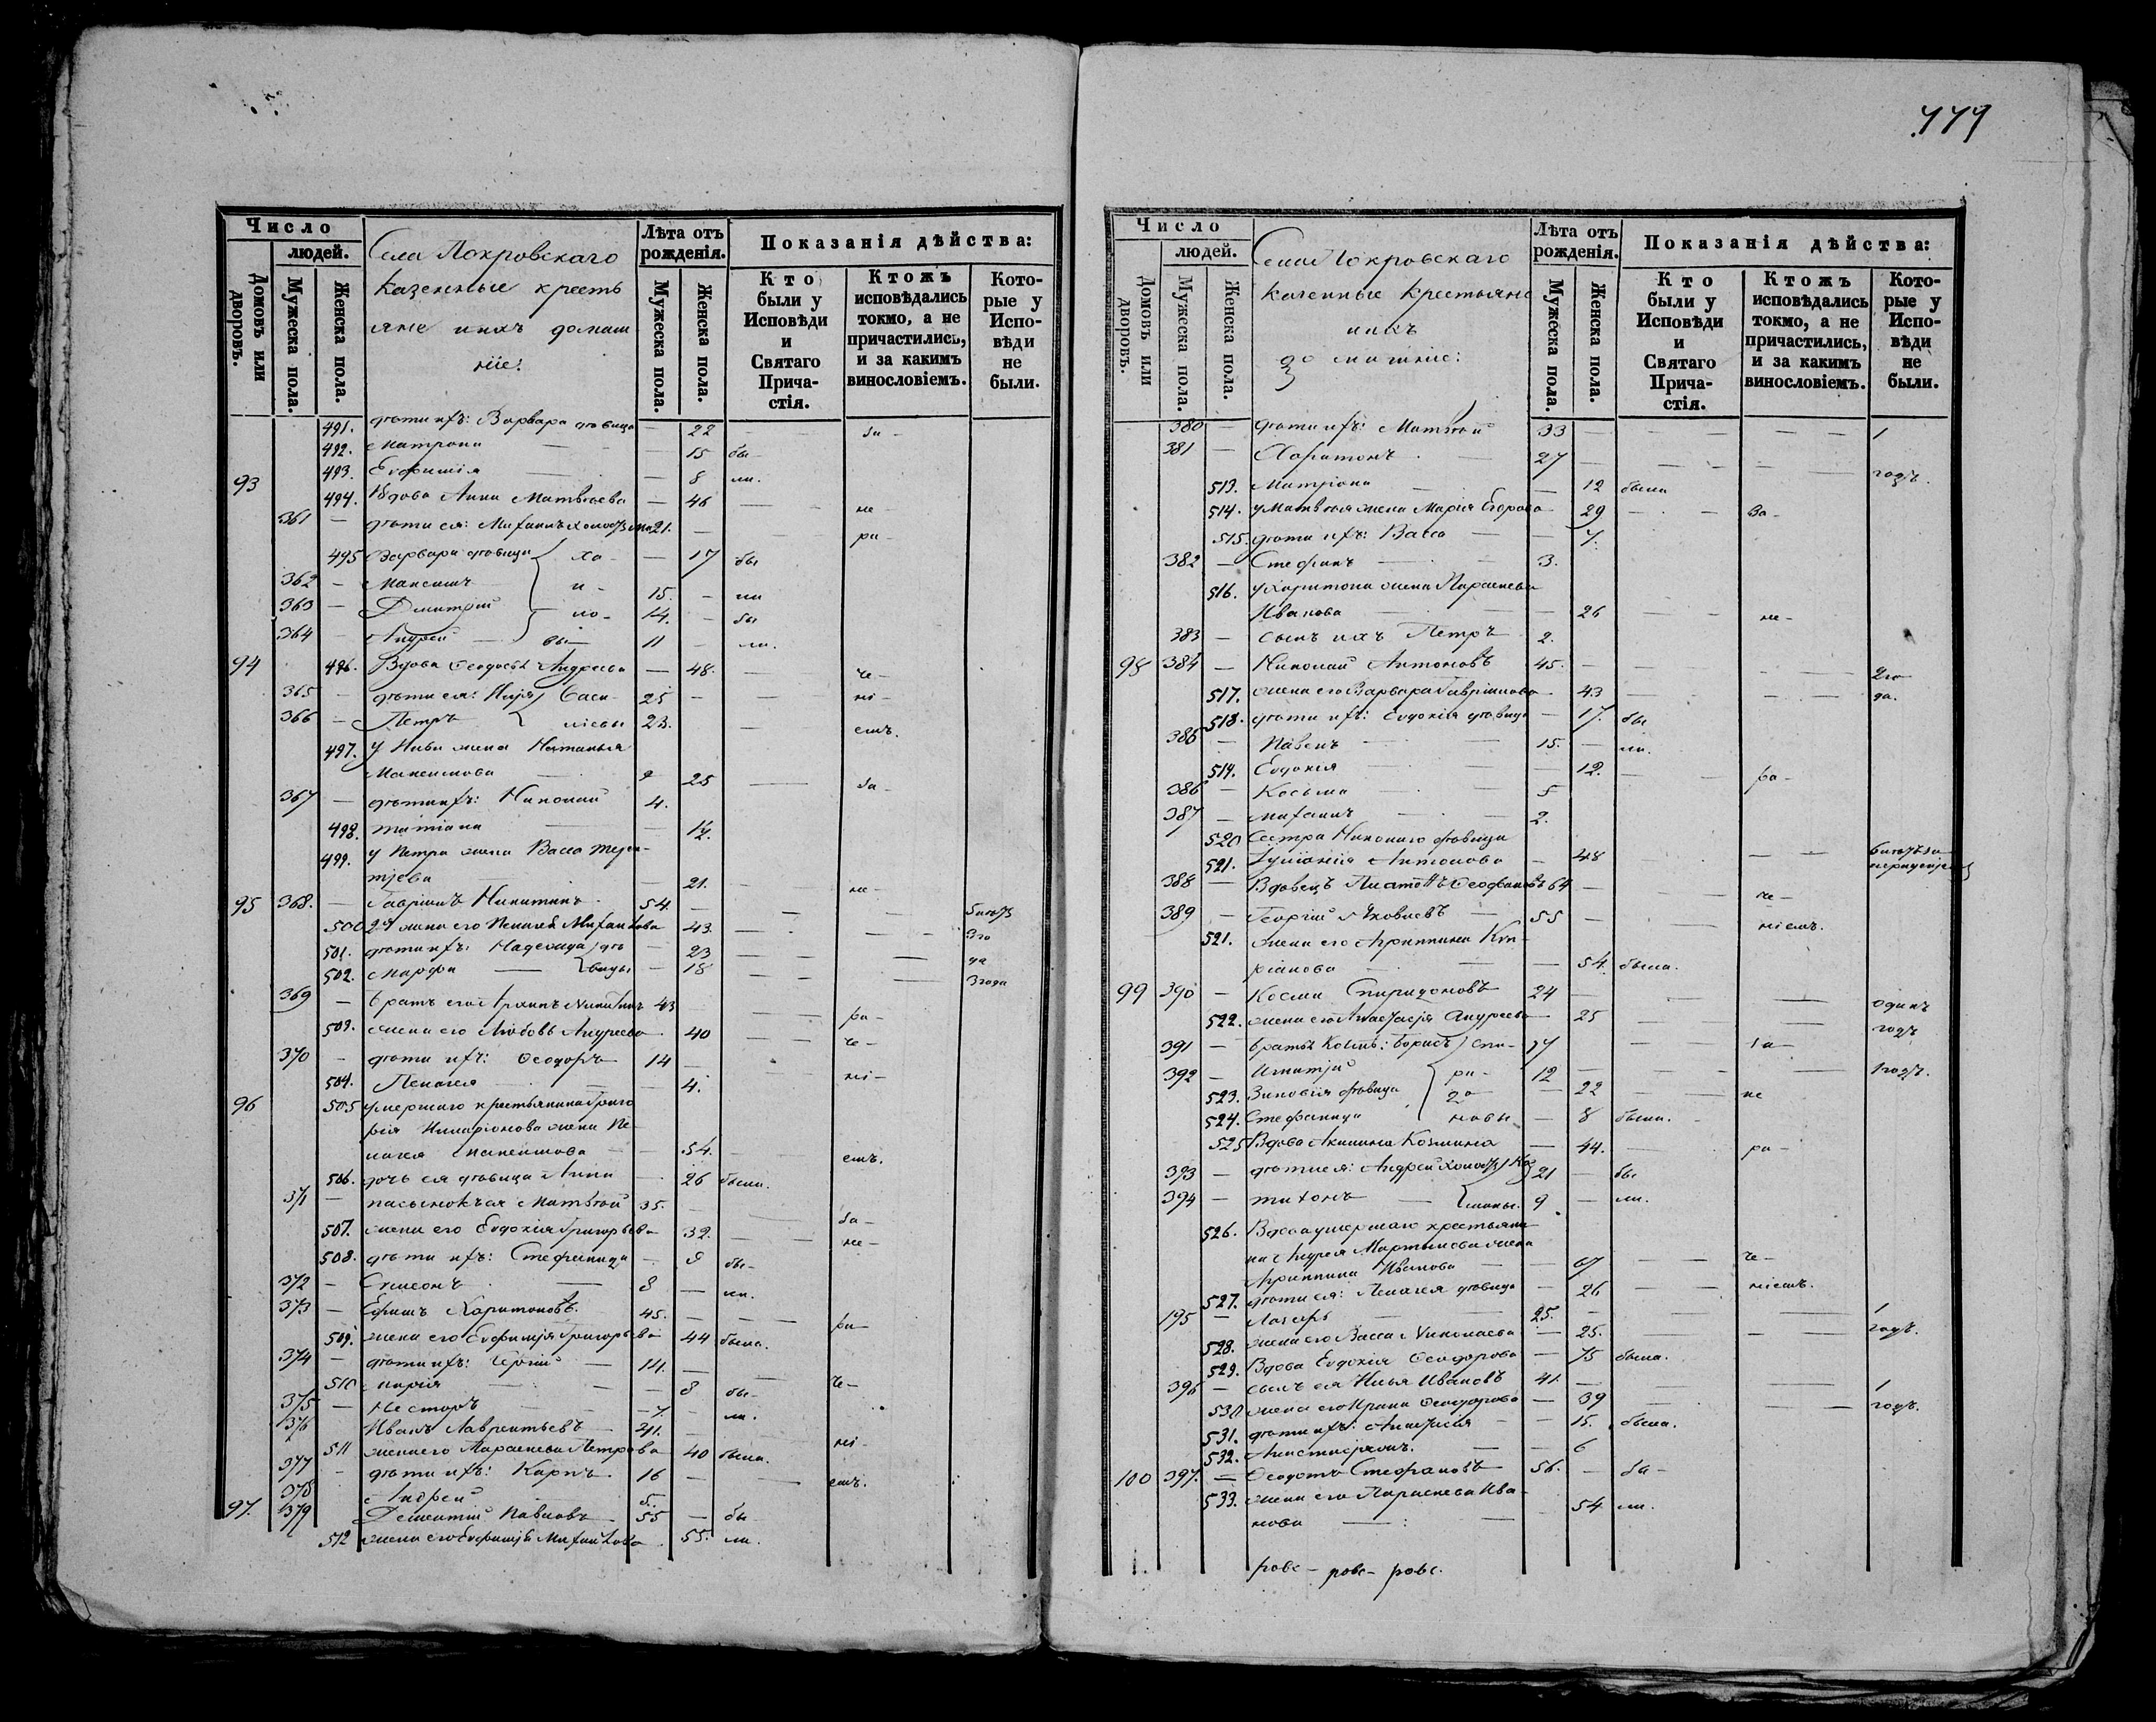 779
Число
людей.
Домовъ или дворовъ.
Мужеска пола.
Женска пола.
Села Покровскаго
казенные кресть
яне и ихъ домаш
ніе:
Лѣта отъ рожденія.
Мужеска пола.
Женска пола.
Показанія дѣйства:
Кто были у Исповѣди и Святаго Прича-стія.
Ктожъ исповѣдались токмо, а не причастились, и за какимъ винословіемъ.
Кото-рые у Испо-вѣди не были.
491. дѣти ихъ: Варвара дѣвица — 22 — за-
492. Матрона — 15 бы-
493. Евфимія — 8 ли.
93 494. Вдова Анна Матвѣева — 46 — не-
361 — дѣти ея: Михаилъ холостъ 21. — ра-
495 Варвара дѣвица — 17 бы
362 — Максимъ 15. — ли
363 — Димитрій 14. — бы
364 — Андрей 11 — ли.
94 496. Вдова Ѳеодосья Андреева — 48. — че-
365 — дѣти ея: Илья Васи- 25 — ні-
366 — Петръ ліевы 23. — емъ.
497. у Ильи жена Наталья
Максимова 25 — за-
367 — дѣти ихъ: Николай 4.
498. Татіана —
499. у Петра жена Васса Терен-
тьева — 21. — не-
95 368. — Гавріилъ Никитинъ 54. —
500 жена его Пелагея Михаилова 43.
501. дѣти ихъ: Надежда дѣ 23
502. Марфа вицы — 18 — 3 года
369 — братъ его Архипъ Никитинъ 43 — ра-
503. жена его Любовь Андреева 40 — че-
370 — дѣти ихъ: Ѳеодоръ 14 — ні-
504. Пелагея — 4.
96 505 умершаго крестьянина Григо
рія Иларіонова жена Пе-
лагея Максимова — 54. — емъ.
506. дочь ея дѣвица Анна — 26 была.
371 — пасынокъ ея Матвѣй 35. — за-
507. жена его Евдокія Григорьева 32. — не-
508. дѣти ихъ: Стефанида — 9 бы-
372 — Симеонъ 8 — ли.
373 — Ефимъ Харитоновъ. 45. — ра-
509. жена его Евфимія Григорьева 44 была.
374 — дѣти ихъ: Сергій — 14. — че-
510 Марія — 8 бы-
375 — Несторъ 7. — ли.
376 Иванъ Лаврентьевъ 41. — ні-
511 жена его Параскева Петрова 40 была.
377 — дѣти ихъ: Карпъ 16 — емъ.
378 Андрей 5.
97. 379 Дементій Павловъ 55 — бы
512 жена его Евфимія Михаилова 55. ли.
Число
людей.
Домовъ или дворовъ.
Мужеска пола.
Женска пола.
Села Покровскаго
казенные крестьяне
и ихъ
домашніе:
Лѣта отъ рожденія.
Мужеска пола.
Женска пола.
Показанія дѣйства:
Кто были у Исповѣди и Святаго Прича-стія.
Ктожъ исповѣдались токмо, а не причастились, и за какимъ винословіемъ.
Кото-рые у Испо-вѣди не были.
380 — дѣти ихъ: Матвѣй 33 — 1
381 — Харитонъ 27 — годъ.
513. Матрона — 12 была
514. у Матвѣя жена Марія Егорова 29 — за-
515. дѣти ихъ: Васса — 7.
382 — Стефанъ 3.
516. у Харитона жена Параскева
Иванова — 26 — не-
383 — сынъ ихъ Петръ 2.
98 384 — Николай Антоновъ 45. — 2 го
517. жена его Варвара Гавріилова 43 — да.
518. дѣти ихъ: Евдокія дѣвица — 17. бы
385 — Павелъ 15. — ли.
519. Евдокія — 12. — ра-
386 — Косьма 5
387 — Михаилъ 2.
520 Сестра Николаю дѣвица
521. Антонова — 48
388 — Вдовецъ Платонъ Ѳеофановъ 64 — че-
389 — Георгій Яковлевъ 55 — ніемъ.
521. жена его Агриппина Кип-
ріанова — 54. была.
99 390 — Косма Спиридоновъ 24 — одинъ
522. жена его Анастасія Андреева 25 — годъ
391 — братья Космы: Борисъ Спи- 17 — за-
392 — Игнатій ри- 12 — 1 годъ.
523. Зиновія дѣвица до — 22 — не
524. Стефанида новы — 8 была.
525 Вдова Акилина Козмина — 44. — ра-
393 — дѣти ея: Андрей холостъ 21 — бы
394 — Тихонъ 9 — ли.
526. Вдова умершаго крестьяни
на Андрея Мартынова жена
Агриппина Иванова — 67 — че-
527. дѣти ея: Пелагея дѣвица — 26 — ніемъ.
195 — Лазарь 25. — 1
528. жена его Васса Николаева — 25. — годъ.
529. Вдова Евдокія Ѳеодорова — 75 была.
396 — сынъ ея Илья Ивановъ 41. — 1
530 жена его Ирина Ѳеодорова — 39 — годъ.
531. дѣти ихъ: Анастасія — 15. была.
532. — 6
100 397. — Ѳеодотъ Стефановъ 56. — бы-
533. жена его Параскева Ива-
нова — 54 ли.